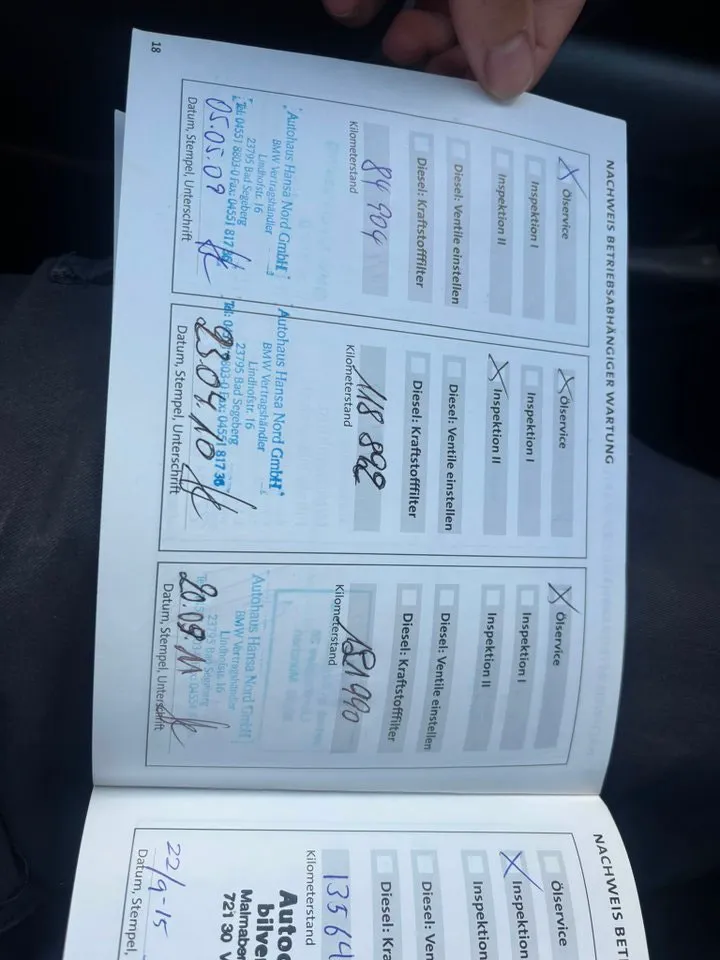 NACHWEIS BETRIEBSABHÄNGIGER WARTUNG
X Ölservice
Inspektion I
Inspektion II
Diesel: Ventile einstellen
Diesel: Kraftstofffilter
84 904
Kilometerstand
Autohaus Hansa Nord GmbH
BMW Vertragshändler
Lindhofstr. 16
23795 Bad Segeberg
Tel: 04551 8803-0 Fax: 04551 817
05.05.09
Datum, Stempel, Unterschrift
X Ölservice
Inspektion I
X Inspektion II
Diesel: Ventile einstellen
Diesel: Kraftstofffilter
118 892
Kilometerstand
Autohaus Hansa Nord GmbH
BMW Vertragshändler
Lindhofstr. 16
23795 Bad Segeberg
Fax: 04551 817 36
23.04.10
Datum, Stempel, Unterschrift
X Ölservice
Inspektion I
Inspektion II
Diesel: Ventile einstellen
Diesel: Kraftstofffilter
Kilometerstand
Autohaus Hansa Nord GmbH
BMW Vertragshändler
Lindhofstr. 16
23795 Bad Segeberg
20.09.11
Datum, Stempel, Unterschrift
18
NACHWEIS BET
Ölservice
X Inspektion
Inspektion
Diesel: Ven
Diesel: Kra
13564
Kilometerstand
Autoc
bilver
Malmaber
721 30 V
22/9-15
Datum, Stempel,